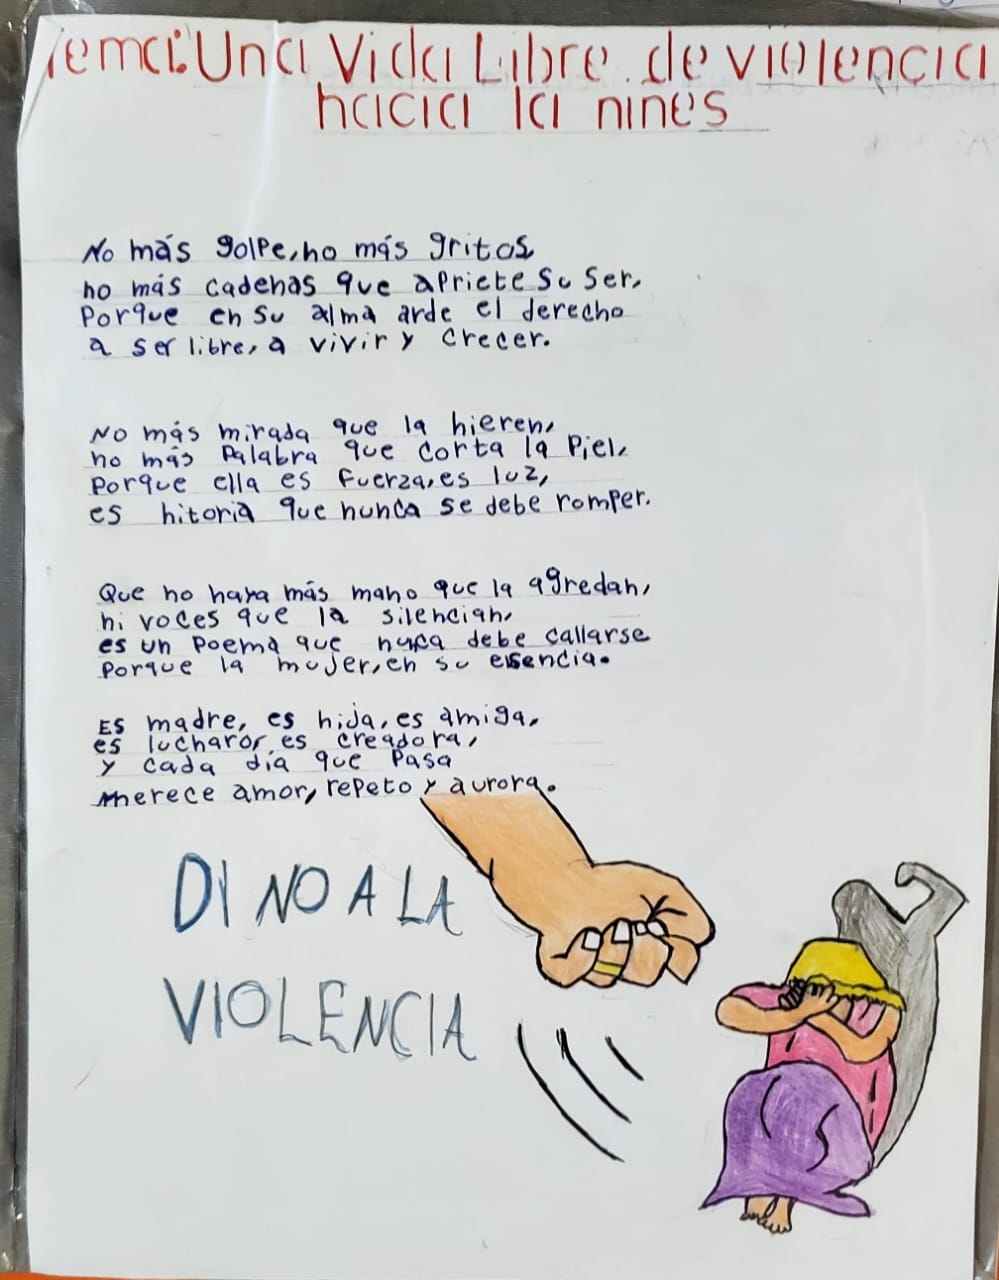 Tema: Una Vida Libre de violencia
hacia la niñes
No más golpe, no más gritos
no más cadenas que apriete su ser,
Porque en su alma arde el derecho
a ser libre, a vivir y crecer.
No más mirada que la hieren,
no más Palabra que corta la Piel,
Porque ella es fuerza, es luz,
es hitoria que nunca se debe romper.
Que no haya más mano que la agredan,
ni voces que la silencian,
es un Poema que nuca debe callarse
Porque la mujer, en su esencia.
Es madre, es hija, es amiga,
es lucharor, es creadora,
y cada día que Pasa
merece amor, repeto y aurora.
DI NO A LA
VIOLENCIA